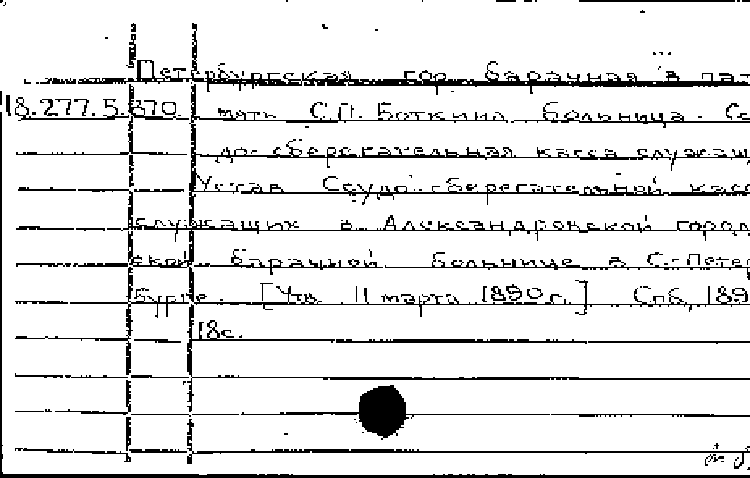 Петербургская гор. барачная в пат
18.277.5.370 мять С.П. Боткина больница. Сс
до-сберегательная касса служащ
Устав Ссудо-сберегательной касс
служащих в Александровской город
ской барачной больнице в С.-Петер
бурге. [Утв. 11 марта 1890 г.] Спб, 189
18с.